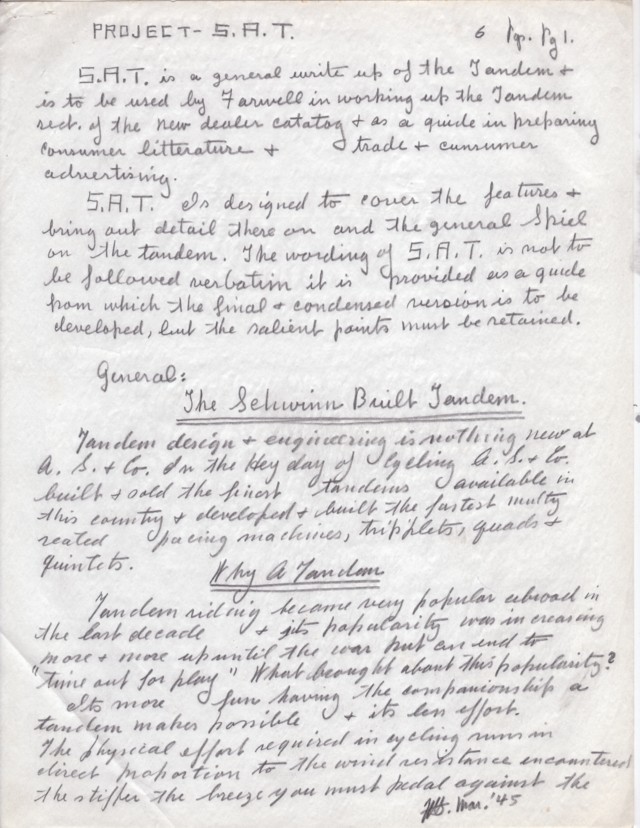 PROJECT- S.A.T. 6 Pgs. Pg 1.
S.A.T. is a general write up of the Tandem +
is to be used by Farwell in working up the Tandem
sect. of the new dealer catatog + as a guide in preparing
consumer litterature + trade + cunsumer
advertising.
S.A.T. Is designed to cover the features +
bring out detail there on and the general Spiel
on the tandem. The wording of S.A.T. is not to
be followed verbatim it is provided as a guide
from which the final + condensed version is to be
developed, but the salient points must be retained.
General:
The Schwinn Built Tandem.
Tandem design + engineering is nothing new at
A. S. + Co. In the Hey day of Cycling A. S. + Co.
built + sold the finest tandems available in
this country + developed + built the fastest multy
seated pacing machines, tripplets, quads +
quintets.
Why A Tandem
Tandem riding became very popular abroad in
the last decade + its popularity was increasing
more + more up until the war put an end to
"time out for play" What brought about this popularity?
Its more fun having the companionship a
tandem makes possible + its less effort.
The physical effort required in cycling runs in
direct proportion to the wind resistance encountered
the stiffer the breeze you must pedal against the
Mar. '45